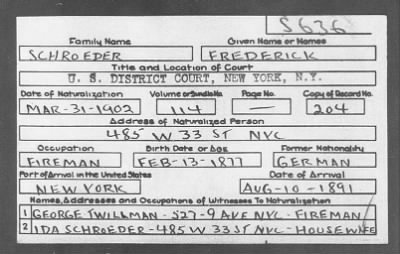 S636
Family Name Given Name or Names
SCHROEDER FREDERICK
Title and Location of Court
U. S. DISTRICT COURT, NEW YORK, N.Y.
Date of Naturalization Volume or Bundle No. Page No. Copy of Record No.
MAR-31-1902 114 — 204
Address of Naturalized Person
485 W 33 ST NYC
Occupation Birth Date or Age Former Nationality
FIREMAN FEB-13-1877 GERMAN
Port of Arrival in the United States Date of Arrival
NEW YORK AUG-10-1891
Names, Addresses and Occupations of Witnesses To Naturalization
1 GEORGE TWILLMAN - 527-9 AVE NYC - FIREMAN
2 IDA SCHROEDER - 485 W 33 ST NYC - HOUSEWIFE